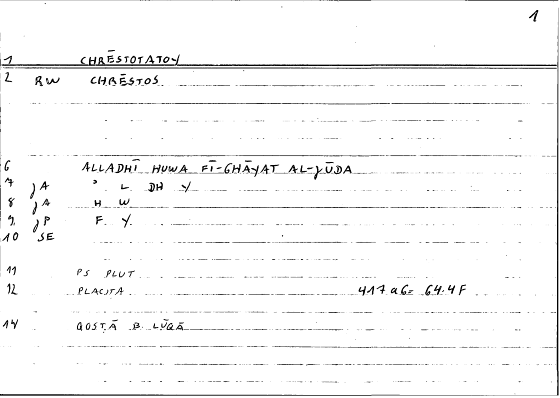 1
1 CHRĒSTOTATOY
2 RW CHRĒSTOS
6 ALLADHĪ HUWA FĪ-GHĀYAT AL-JŪDA
7 JA ʾ L DH Y
8 JA H W
9 JP F Y
10 SE
11 PS PLUT
12 PLACITA 417a6= 64.4F
14 QOSṬĀ B. LŪQĀ